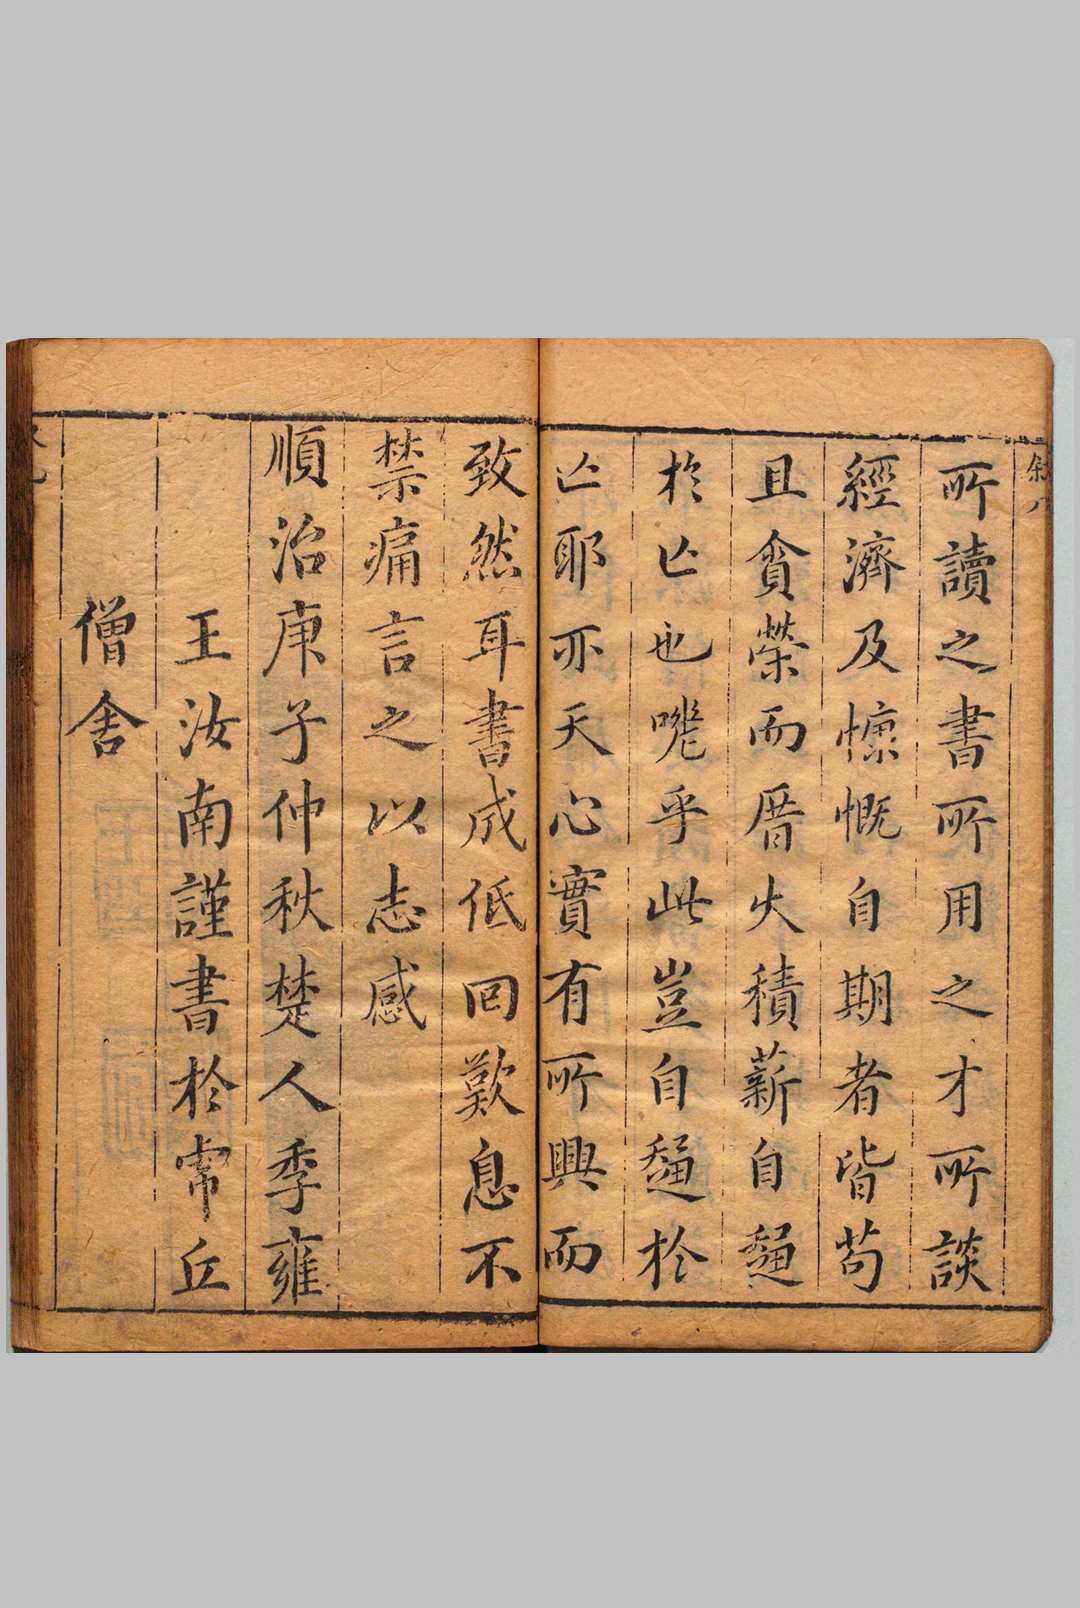 所讀之書所用之才所談
經濟及慷慨自期者皆苟
且貪榮而厝火積薪自趨
於亡也嘅乎此豈自趨於
亡耶亦天心實有所興而
致然耳書成低回歎息不
禁痛言之以志感
順治庚子仲秋楚人季雍
王汝南謹書於常丘
僧舍